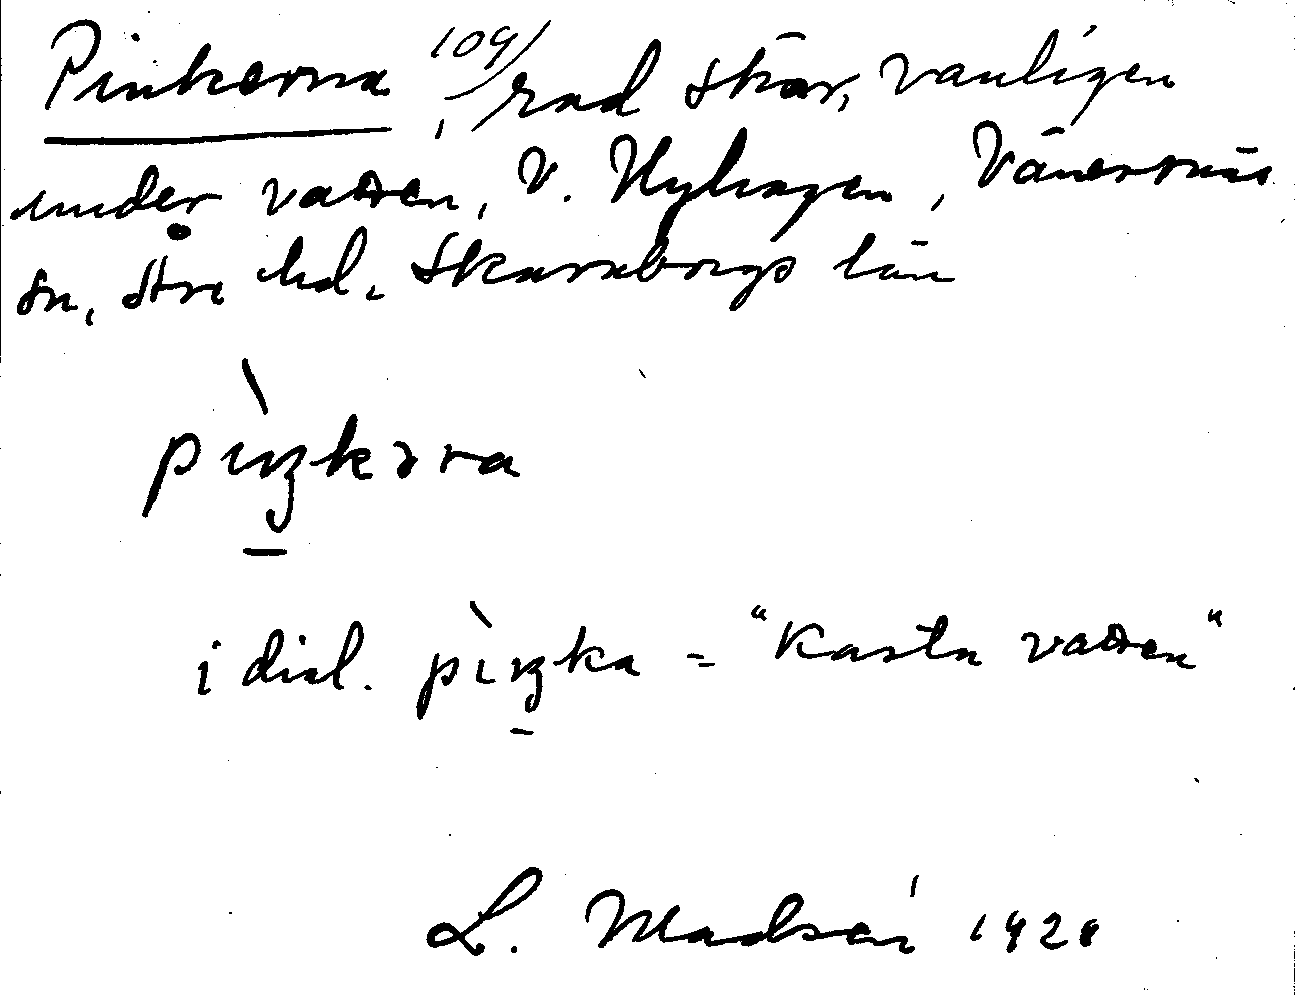 Pinkerna, 109/ rad skär, vanligen
under vatten, V. Hyhagen, Vänersnäs
sn, Åse hd. Skaraborgs län
pìŋkəra
i dial. pìŋka = "Kasta vatten"
L. Madsén 1928